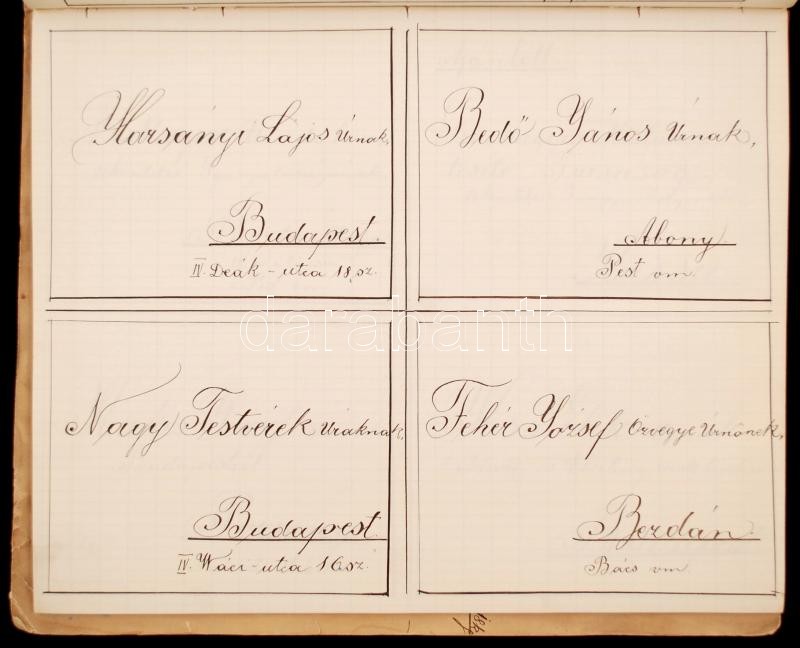 Harsányi Lajos Úrnak,
Budapest.
IV. Deák-utca 18. sz.
Bedő János Úrnak,
Abony
Pest vm.
Nagy Testvérek Uraknak,
Budapest.
IV. Wáci-utca 16 sz.
Fehér József özvegye Úrnőnek,
Bezdán.
Bács vm.
darabanth